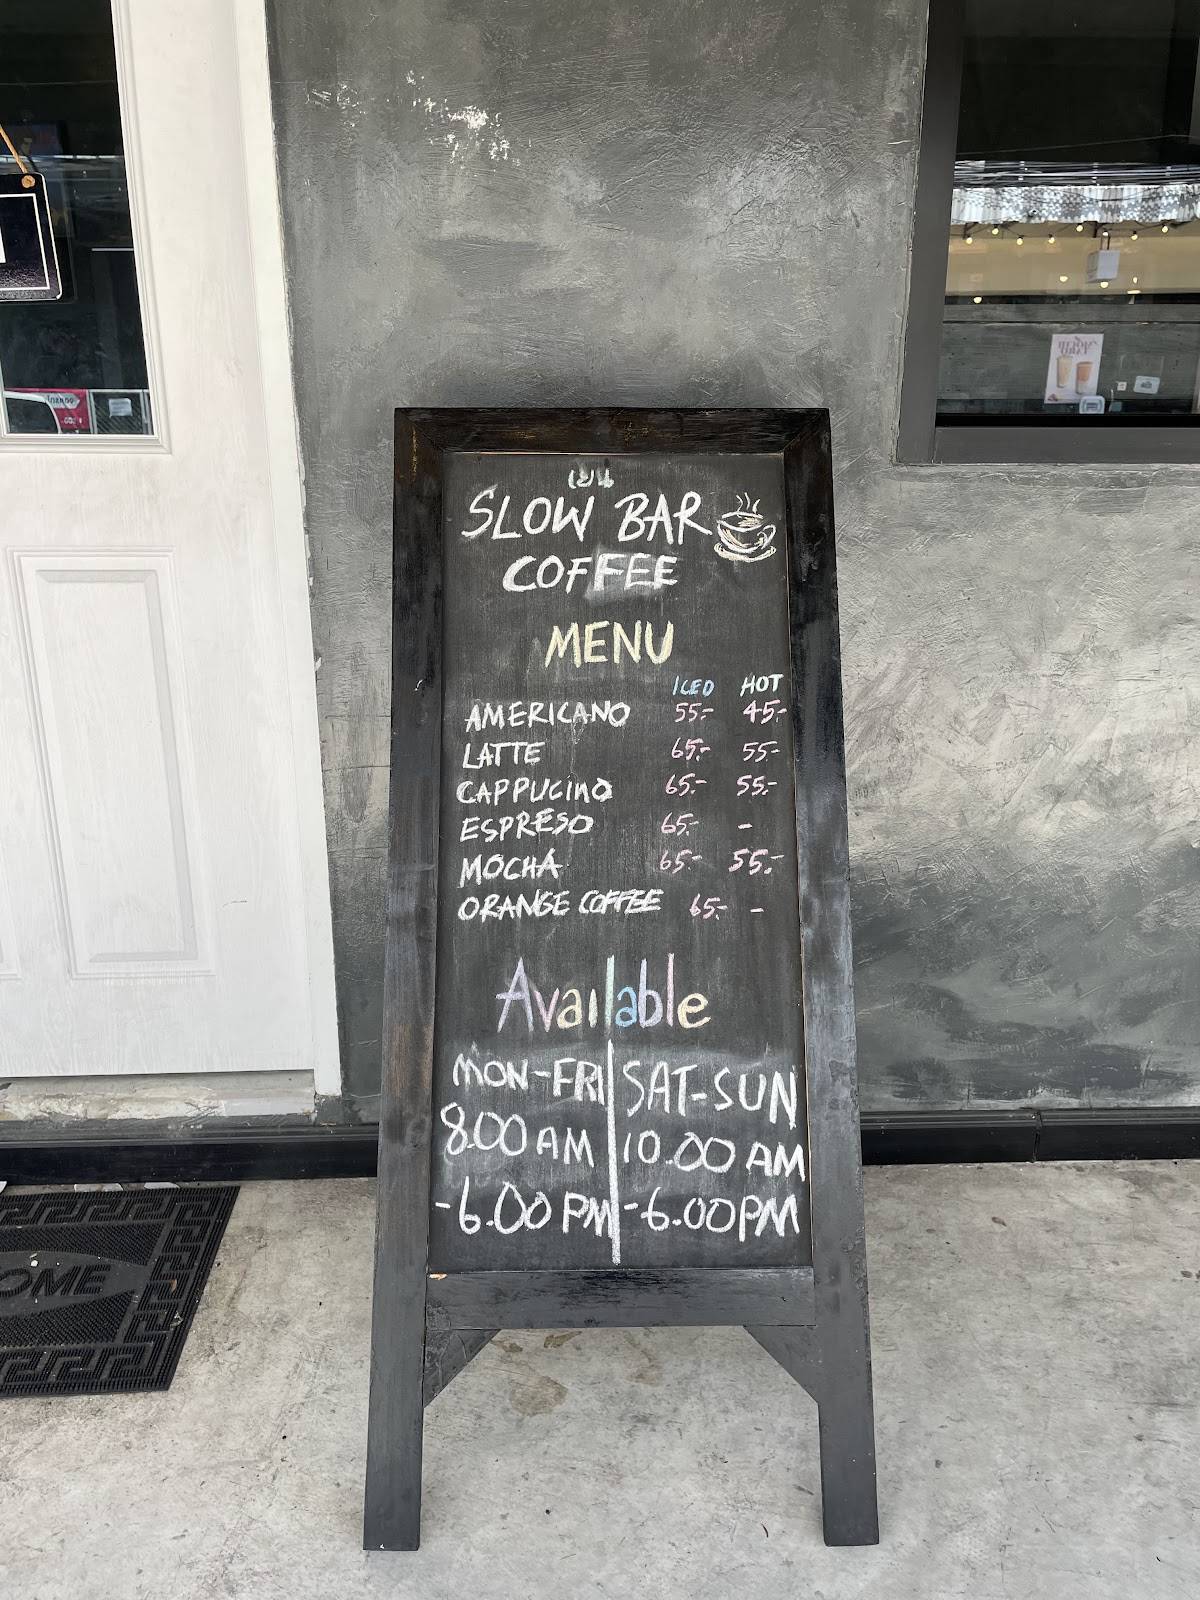 เย็น
SLOW BAR
COFFEE
MENU
ICED HOT
AMERICANO 55.- 45.-
LATTE 65.- 55.-
CAPPUCINO 65.- 55.-
ESPRESO 65.- -
MOCHA 65.- 55.-
ORANGE COFFEE 65.- -
Available
MON-FRI
8.00 AM
-6.00 PM
SAT-SUN
10.00 AM
-6.00 PM
OME